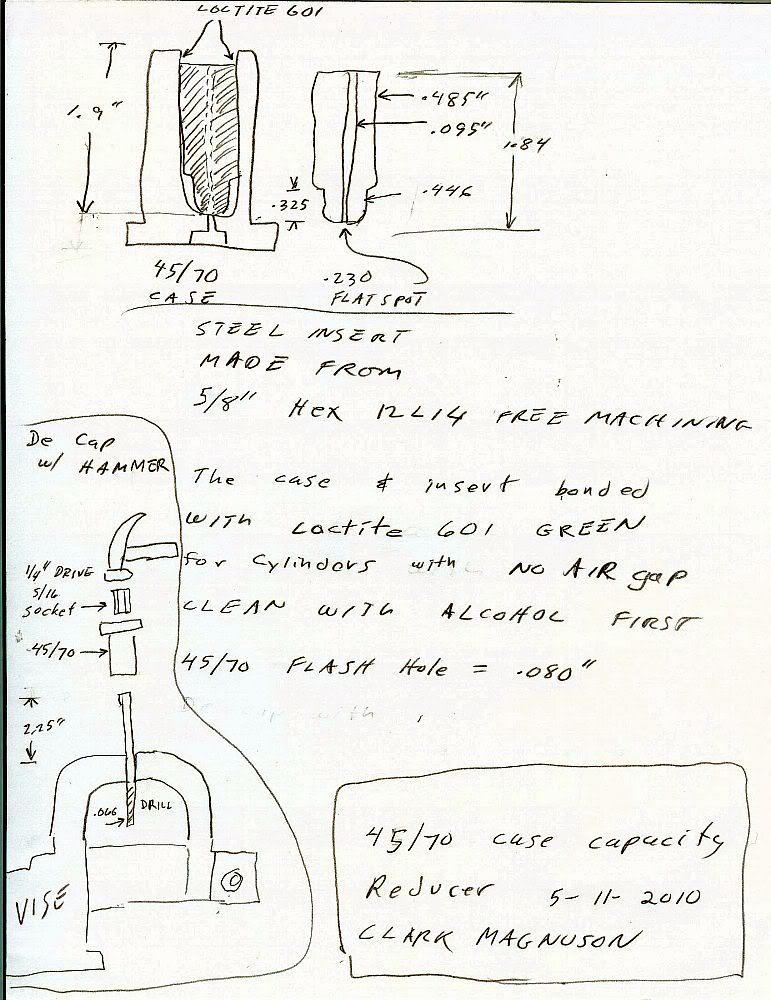 LOCTITE 601
1.9"
.485"
.095"
1.84
.446
.325
45/70
CASE
.230
FLAT SPOT
STEEL INSERT
MADE FROM
5/8" Hex 12L14 FREE MACHINING
De Cap
w/ HAMMER
The case & insert bonded
WITH Loctite 601 GREEN
for Cylinders with NO AIR gap
CLEAN WITH ALCOHOL FIRST
45/70 FLASH Hole = .080"
1/4" DRIVE
5/16
socket
45/70
2.25"
.066
DRILL
VISE
45/70 case capacity
Reducer 5-11-2010
CLARK MAGNUSON